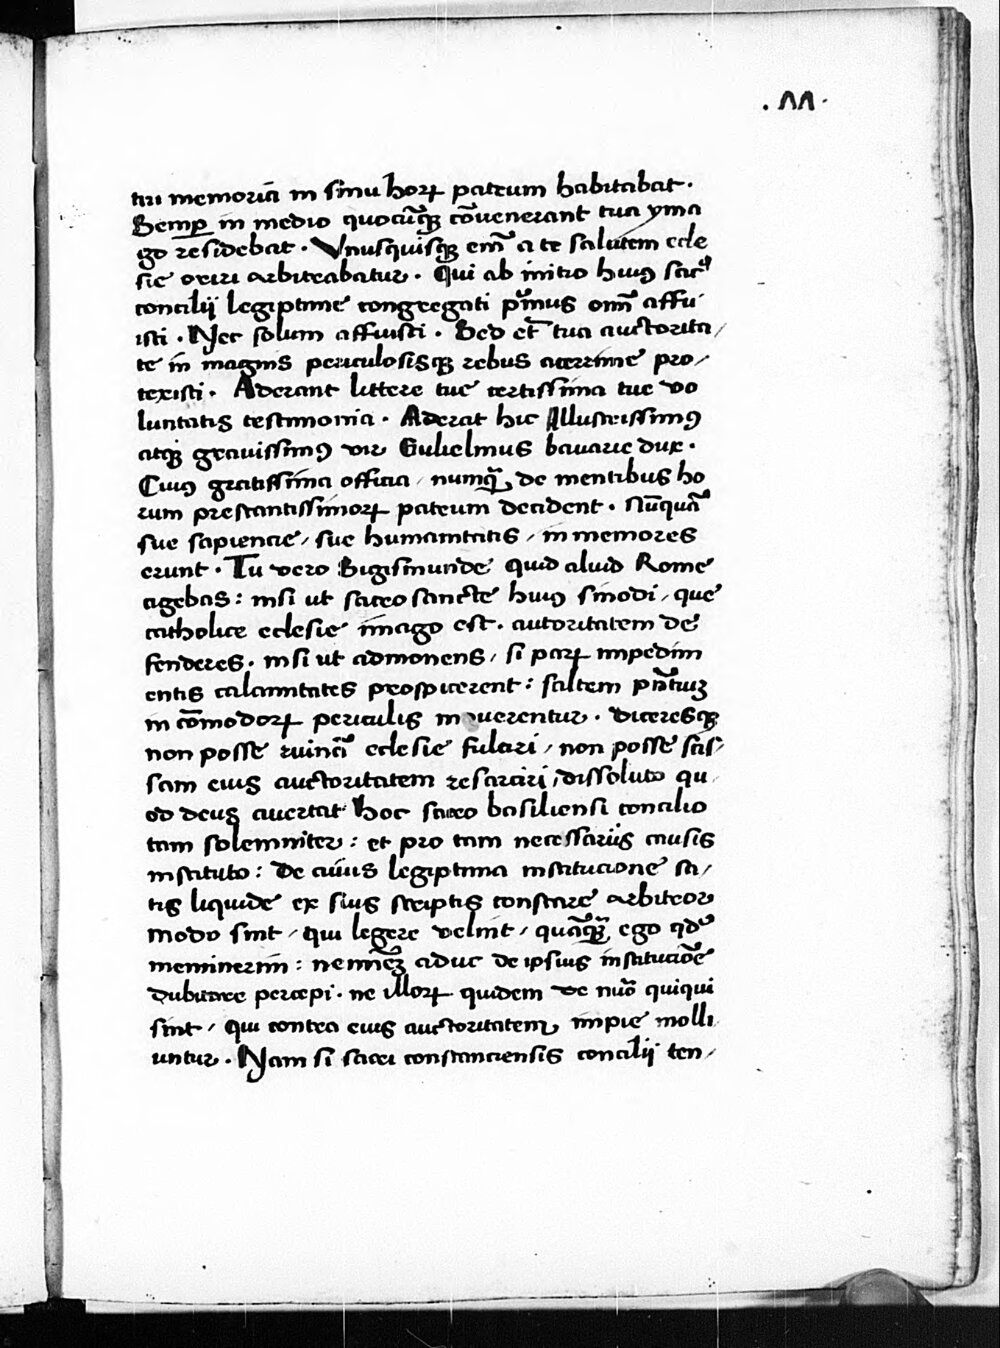 .M.
tui memoriā in sinu horꝝ patrum habitabat.
Semꝑ in medio quocūqꝫ cōvenerant tua yma
go residebat. Vnusquisqꝫ em̄ a te salutem ecle
sie oriri arbitrabatur. Qui ab initio huiꝰ sacͥ
concilij legiptime congregati pͥmus om̄ affu
isti. Nec solum affuisti. Sed et̄ tua auctorita/
te in magnis periculosisqꝫ rebus acerrime pro/
texisti. Aderant littere tue certissima tue vo
luntatis testimonia. Aderat hic Illustrissimꝰ
atqꝫ gravissimꝰ vir Gulielmus bavarie dux.
Cuiꝰ gratissima officia / numqᷓ de mentibus ho
rum prestantissimorꝝ patrum decident. Nūquā
sue sapiencie / sue humanitatis / in memores
erunt. Tu vero Sigismunde quid aluid Rome
agebas: nisi ut sacrosancte huiꝰ sinodi / que
catholice eclesie imago est. autoritatem de
fenderes. nisi ut admonens / si parꝝ impedim
entis calamitates prospicerent: saltem pn̄tiuꝫ
in cōmodorꝝ periculis moverentur. diceresqꝫ
non posse ruinā eclesie fulciri / non posse scis/
sam eius auctoritatem resarciri / dissoluto qu
od deus avertat hoc sacro basiliensi concilio
tam solemniter: et pro tam necessarijs causis
instituto: De cuius legiptima institucione sa/
tis liquide ex suis scriptis constare arbitror
modo sint / qui legere velint / quāqᷓ ego qde
meminerim: neminēꝫ aduc de ipsius institucōe
dubitare percepi. ne illorꝝ quidem de nūo quiqui
sint / qui contra eius auctoritatem impie molli
untur. Nam si sacri constanciensis concilij ten/